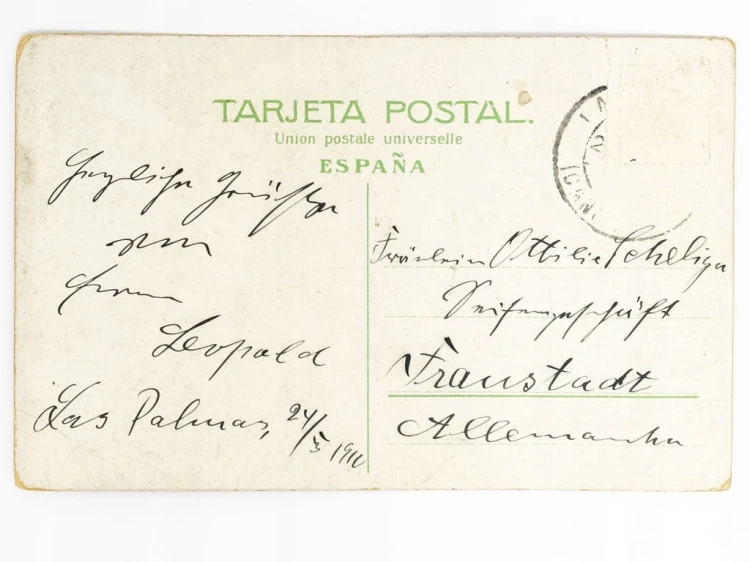 TARJETA POSTAL.
Union postale universelle
ESPAÑA
Herzliche Grüße
von
Leopold
Las Palmas, 24/5 1910
Fräulein Ottilie Scheliga
Seifengeschäft
Fraustadt
Allemanha